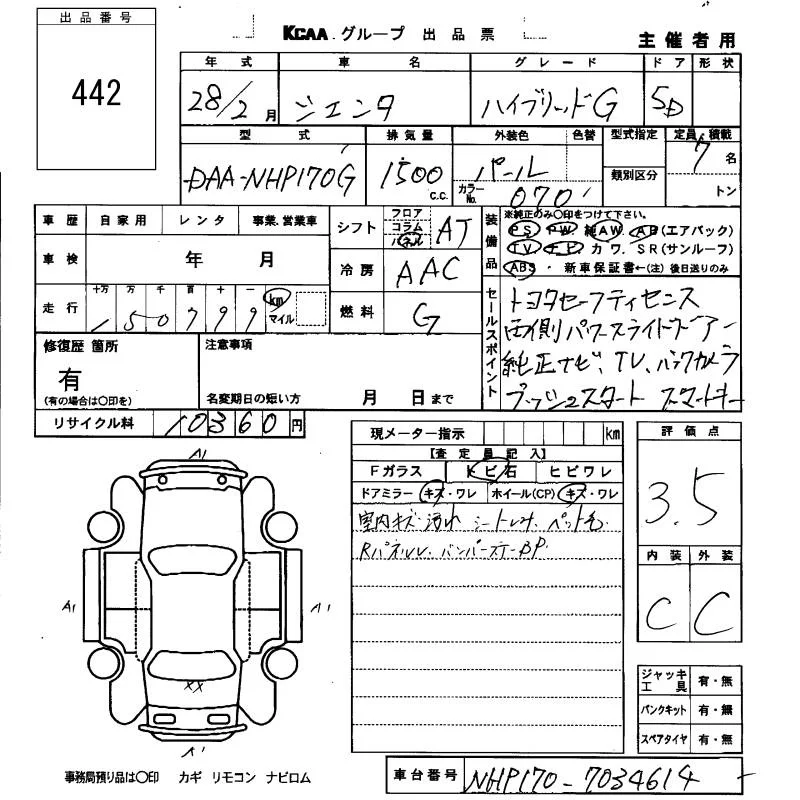 出品番号
442
KCAA グループ 出品票
主催者用
年式 車名 グレード ドア 形状
28/2月 シエンタ ハイブリッドG 5D
型式 排気量 外装色 色替 型式指定 定員・積載
DAA-NHP170G 1500 C.C. パール 類別区分 7名
カラーNo. 070 トン
車歴 自家用 レンタ 事業.営業車
シフト フロア コラム パネル AT
装備品 ※純正のみ○印をつけて下さい。
PS PW 純AW. AB(エアバック)
TV. ナビ カワ. SR(サンルーフ)
ABS ・ 新車保証書←(注)後日送りのみ
車検 年 月
冷房 AAC
走行 十万 万 千 百 十 一
150799 km マイル
燃料 G
セールスポイント
トヨタセーフティセンス
両側パワースライドドアー
純正ナビ、TV、バックカメラ
プッシュスタート スマートキー
修復歴 箇所
有
(有の場合は○印を)
注意事項
名変期日の短い方 月 日まで
リサイクル料 10360円
現メーター指示 km
【査定員記入】
Fガラス トビ石 ヒビワレ
ドアミラー キズ・ワレ ホイール(CP) キズ・ワレ
室内キズ・汚れ シートシミ ペット毛
評価点
3.5
内装 外装
C C
A1
A1
A1
XX
A1
ジャッキ工具 有・無
パンクキット 有・無
スペアタイヤ 有・無
事務局預り品は○印 カギ リモコン ナビロム
車台番号 NHP170-7034614